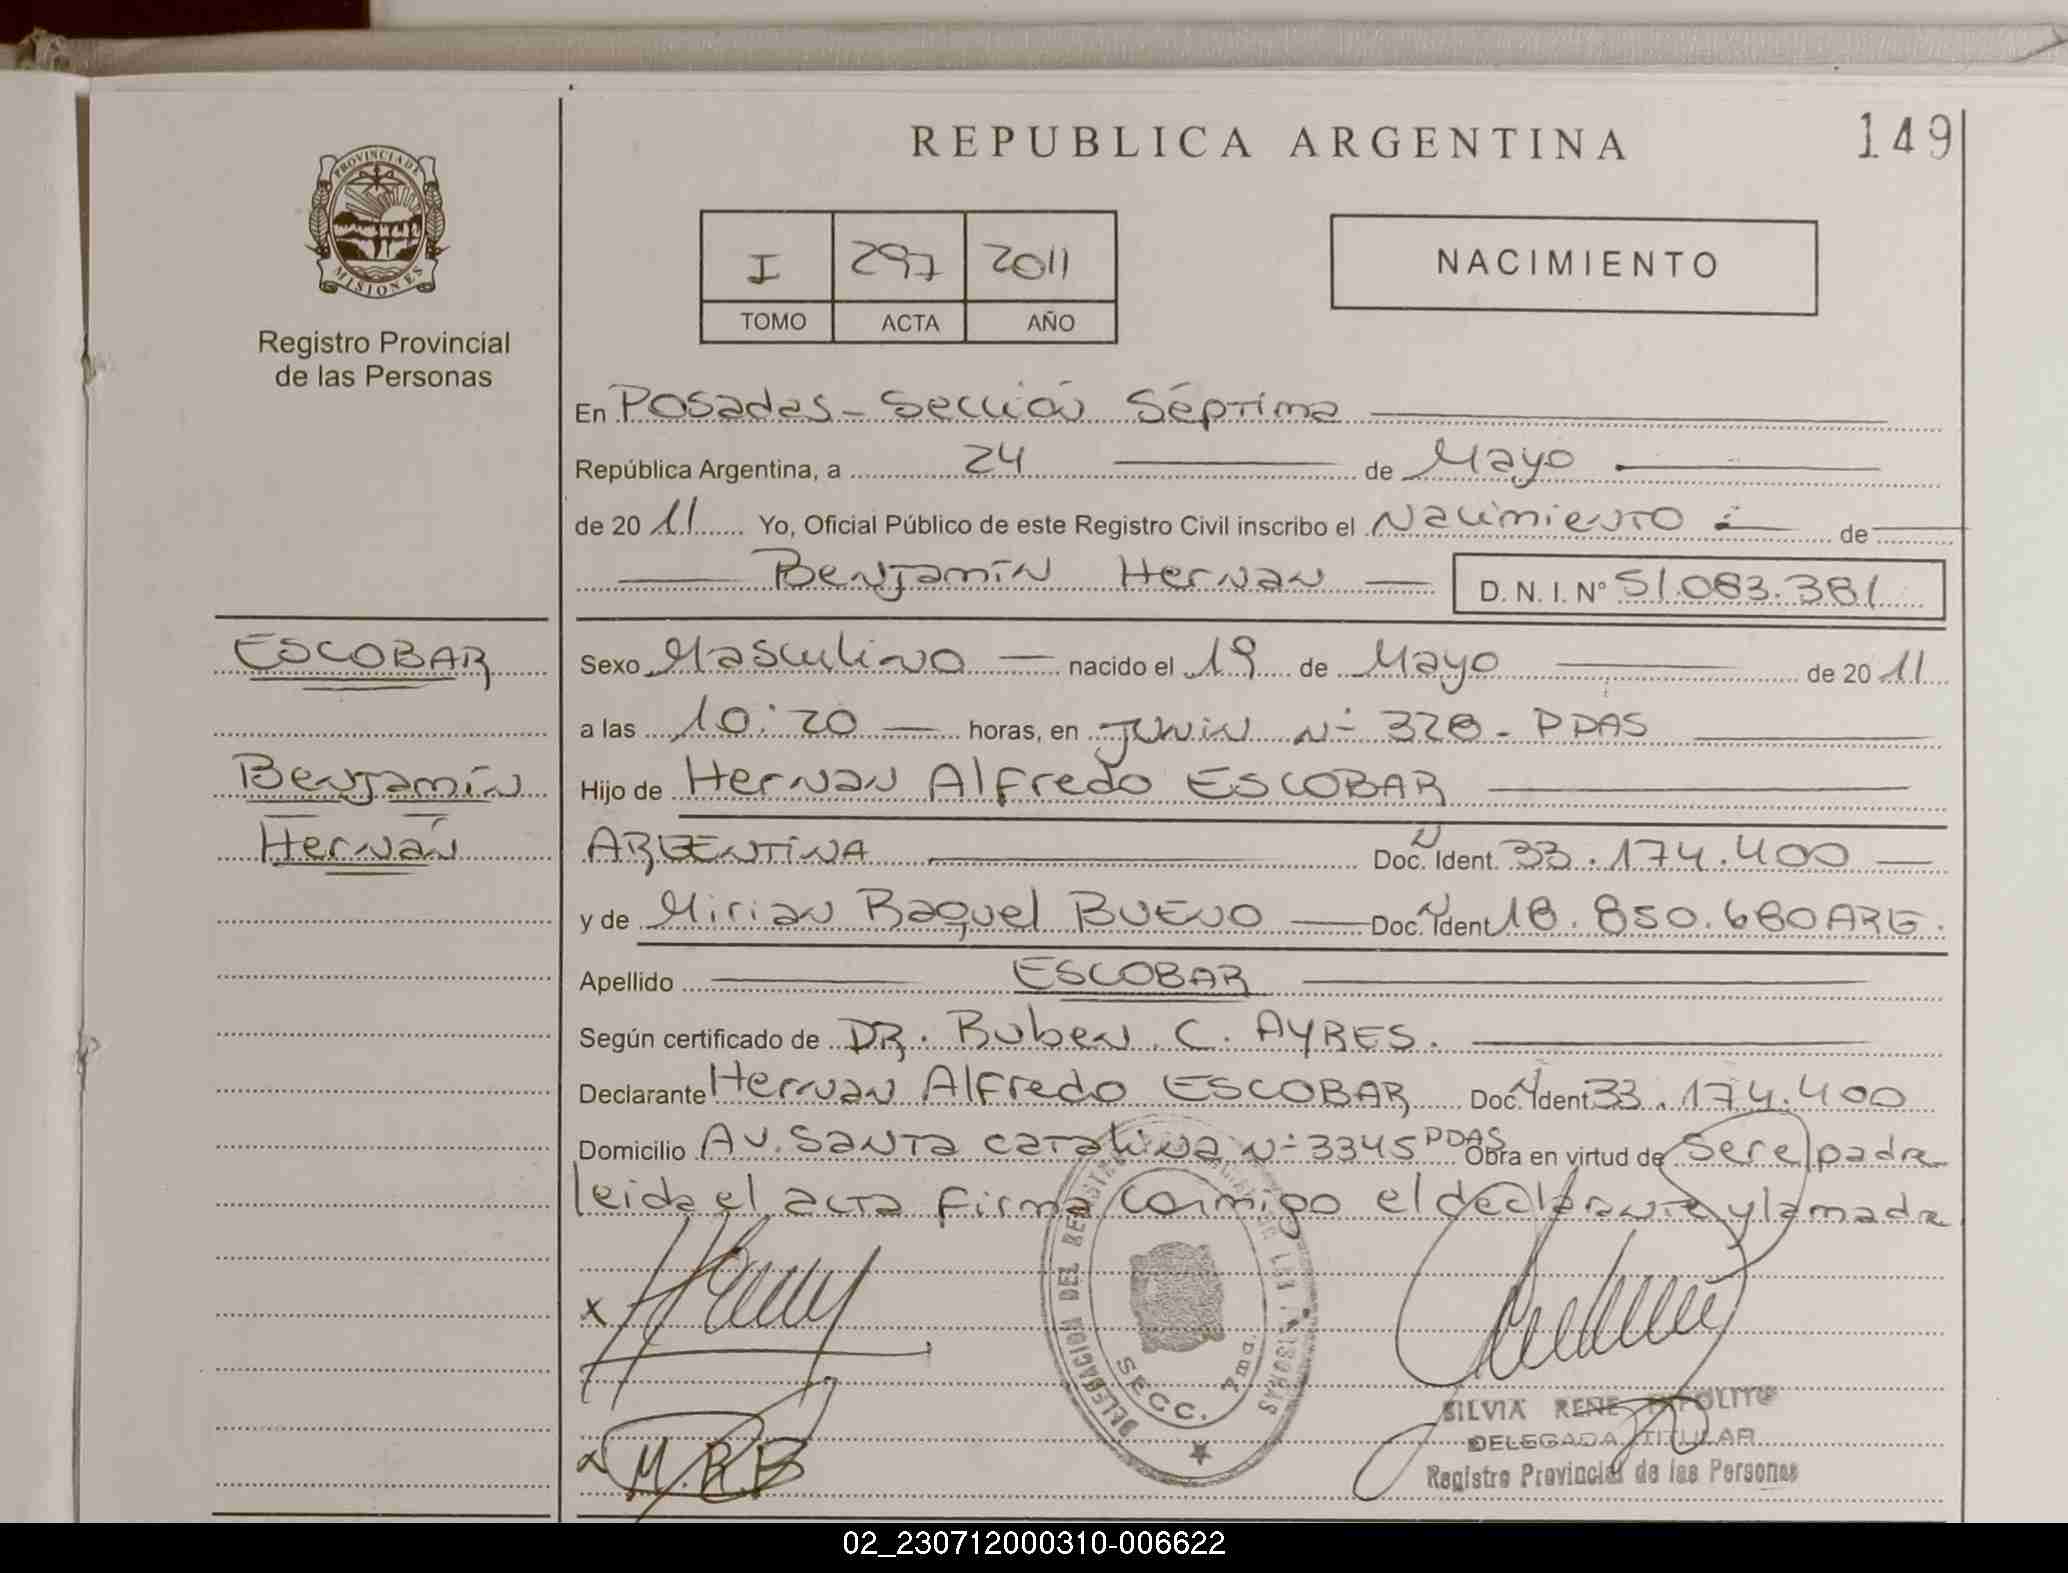 REPUBLICA ARGENTINA
149
PROVINCIA DE
MISIONES
Registro Provincial
de las Personas
I 297 2011
TOMO ACTA AÑO
NACIMIENTO
En Posadas - Sección Séptima
República Argentina, a 24 de Mayo
de 2011 Yo, Oficial Público de este Registro Civil inscribo el Nacimiento de
Benjamín Hernan D. N. I. Nº 51.083.381
ESCOBAR
Sexo Masculino nacido el 19 de Mayo de 2011
a las 10:20 horas, en Junin Nº 328 - PDAS
Benjamín
Hijo de Hernan Alfredo ESCOBAR
Hernán
ARGENTINA Doc. N Ident. 33.174.400
y de Mirian Raquel BUENO Doc. N Ident 18.850.680 ARG.
Apellido ESCOBAR
Según certificado de DR. Ruben C. AYRES.
Declarante Hernan Alfredo ESCOBAR Doc. N Ident 33.174.400
Domicilio Av. Santa Catalina Nº 3345 PDAS Obra en virtud de ser el padre
leida el acta firma conmigo el declarante y la madre
x
M.R.B
DELEGACION DEL REGISTRO DE LAS PERSONAS
SECC. 7ma.
SILVIA RENE HIPOLITO
DELEGADA TITULAR
Registro Provincial de las Personas
02_230712000310-006622